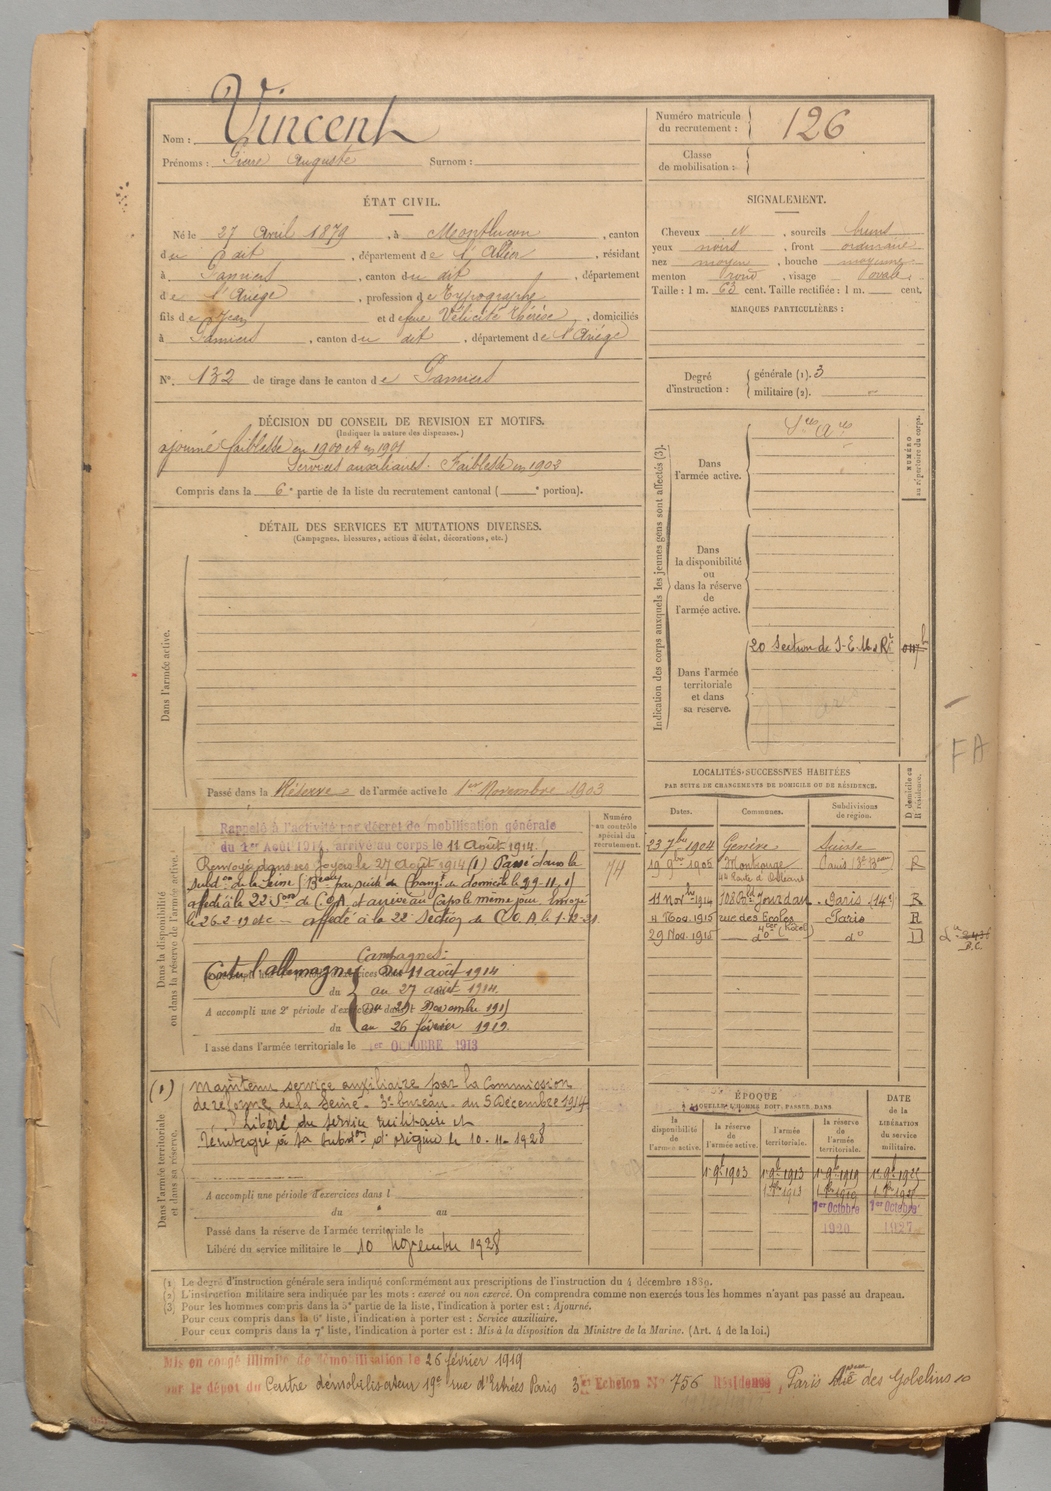 Nom : Vincent
Prénoms : Pierre Auguste Surnom :
Numéro matricule du recrutement : 126
Classe de mobilisation :
ÉTAT CIVIL.
Né le 27 Avril 1879, à Montluçon, canton
du dit, département de l'Allier, résidant
à Pamiers, canton du dit, département
de l'Ariège, profession de Typographe
fils de Jean et de Félicité Thérèse, domiciliés
à Pamiers, canton du dit, département de l'Ariège
N° 132 de tirage dans le canton de Pamiers
SIGNALEMENT.
Cheveux N, sourcils bruns
yeux noirs, front ordinaire
nez moyen, bouche moyenne
menton rond, visage ovale.
Taille : 1 m. 63 cent. Taille rectifiée : 1 m. cent.
MARQUES PARTICULIÈRES :
Degré d'instruction : générale (1). 3
militaire (2). "
DÉCISION DU CONSEIL DE REVISION ET MOTIFS.
(Indiquer la nature des dispenses.)
ajourné faiblesse en 1900 et en 1901
Services auxiliaires. Faiblesse en 1902
Compris dans la 6e partie de la liste du recrutement cantonal ( e portion).
DÉTAIL DES SERVICES ET MUTATIONS DIVERSES.
(Campagnes, blessures, actions d'éclat, décorations, etc.)
Dans l'armée active.
Passé dans la Réserve de l'armée active le 1er Novembre 1903
Indication des corps auxquels les jeunes gens sont affectés (3).
NUMÉRO au répertoire du corps.
Dans l'armée active.
Sces Ares
Dans la disponibilité ou dans la réserve de l'armée active.
Dans l'armée territoriale et dans sa réserve.
20 Section de S-E-M & Rt
Dans la disponibilité ou dans la réserve de l'armée active.
Numéro au contrôle spécial du recrutement.
74
Rappelé à l'activité par décret de mobilisation générale
du 1er Août 1914, arrivé au corps le 11 Août 1914.
Renvoyé dans ses foyers le 27 Août 1914 (1) Passé dans la
subdon de la Seine
affecté à la 22 Son de C.O.A. et arrivé au corps le même jour. Envoyé
le 26-2-19 etc - affecté à la 22e Section de C.O.A. le 1-12-21
Campagnes:
Contre l'allemagne Du 11 août 1914
au 27 août 1914
A accompli une 2e période d'exercices dans l
du
au 26 février 1919
Passé dans l'armée territoriale le 1er OCTOBRE 1913
Dans l'armée territoriale et dans sa réserve.
(1) maintenu service auxiliaire par la Commission
de réforme de la Seine - 3e bureau - du 5 Décembre 1914
Libéré du service militaire et
réintégré à sa subdon d'origine le 10-11-1928
A accompli une période d'exercices dans l
du au
Passé dans la réserve de l'armée territoriale le
Libéré du service militaire le 10 Novembre 1928
LOCALITÉS SUCCESSIVES HABITÉES
PAR SUITE DE CHANGEMENTS DE DOMICILE OU DE RÉSIDENCE.
Dates. Communes. Subdivisions de région. D domicile ou R résidence.
23 7bre 1904 Genève Suisse
19 9bre 1905 Montrouge R
44 Route d'Orléans
11 Novbre 1914 108 Bd Jourdan Paris (14e) R
4 Nov. 1915 rue des Ecoles Paris R
29 Nov. 1915 do (Hotel) do D
FA
ÉPOQUE
À LAQUELLE L'HOMME DOIT PASSER DANS
la disponibilité de l'armée active. la réserve de l'armée active. l'armée territoriale. la réserve de l'armée territoriale.
DATE de la LIBÉRATION du service militaire.
1r 9b 1903 1r 9b 1913 1r 9b 1919 1r 9b 1925
1er Octobre 1er Octobre
1920 1927
(1) Le degré d'instruction générale sera indiqué conformément aux prescriptions de l'instruction du 4 décembre 1889.
(2) L'instruction militaire sera indiquée par les mots : exercé ou non exercé. On comprendra comme non exercés tous les hommes n'ayant pas passé au drapeau.
(3) Pour les hommes compris dans la 5e partie de la liste, l'indication à porter est : Ajourné.
Pour ceux compris dans la 6e liste, l'indication à porter est : Service auxiliaire.
Pour ceux compris dans la 7e liste, l'indication à porter est : Mis à la disposition du Ministre de la Marine. (Art. 4 de la loi.)
Mis en congé illimité de démobilisation le 26 février 1919
par le dépôt du Centre démobilisateur 19e rue d'Entrées Paris 3e Echelon N° 756 Résidence, Paris des Gobelins 20